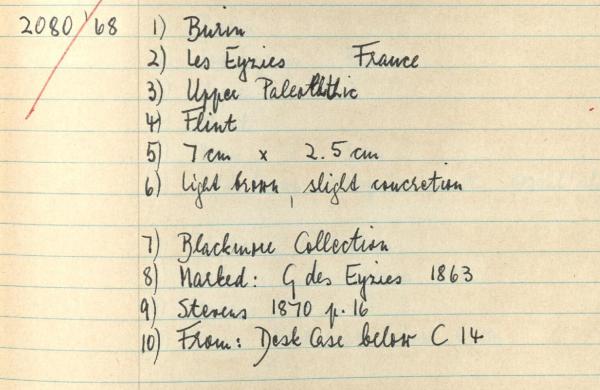 2080/68 1) Burin
2) Les Eyzies France
3) Upper Paleolithic
4) Flint
5) 7cm x 2.5 cm
6) light brown, slight concretion
7) Blackmore Collection
8) Marked: G des Eyzies 1863
9) Stevens 1870 p. 16
10) From: Desk Case below C 14